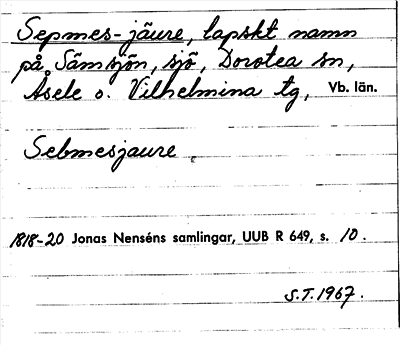 Sepmes-jäure, lapskt namn
på Sämsjön, sjö, Dorotea sn,
Åsele o. Vilhelmina tg, Vb. län.
Sebmesjaure.
1818-20 Jonas Nenséns samlingar, UUB R 649, s. 10.
S.T. 1967.